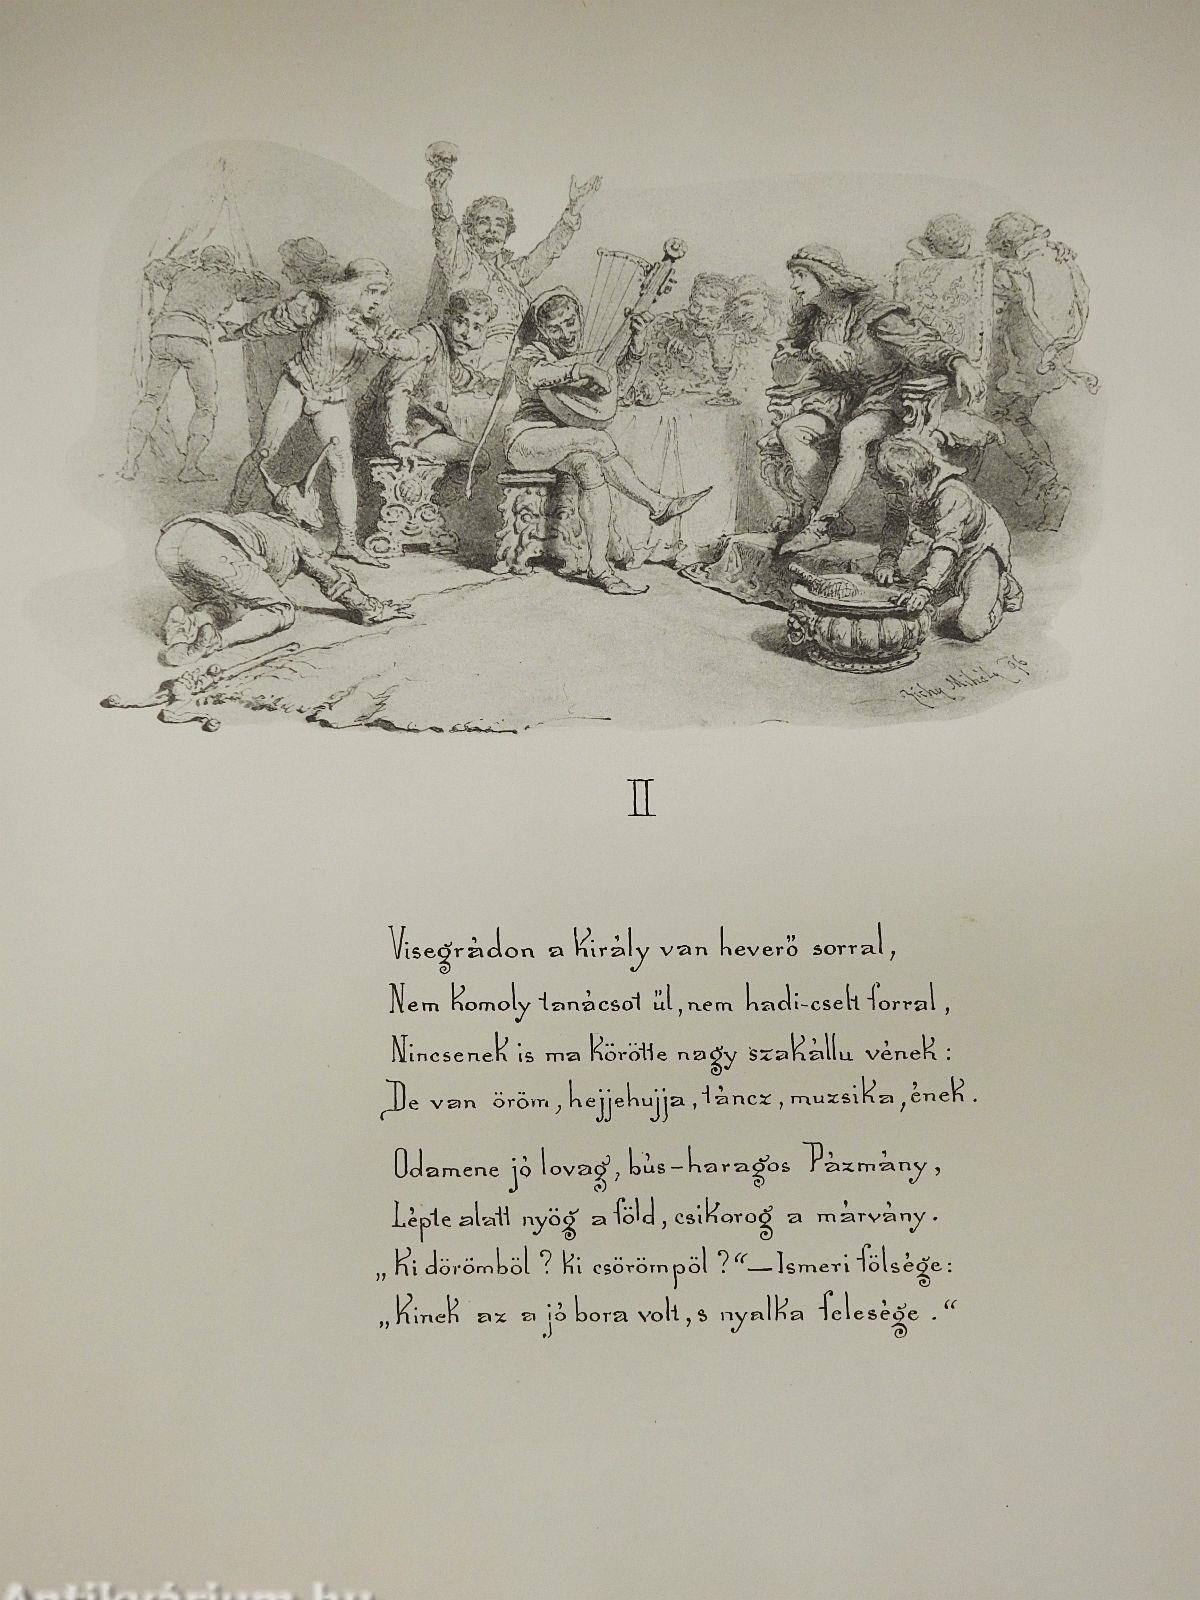 Zichy Mihály 96
II
Visegrádon a király van heverő sorral,
Nem komoly tanácsot űl, nem hadi-cselt forral,
Nincsenek is ma körötte nagy szakállu vének:
De van öröm, hejjehujja, táncz, muzsika, ének.
Odamene jó lovag, bús-haragos Pázmány,
Lépte alatt nyög a föld, csikorog a márvány.
„Ki dörömböl? ki csörömpöl?“—Ismeri fölsége:
„Kinek az a jó bora volt, s nyalka felesége.“
Antikvárium.hu